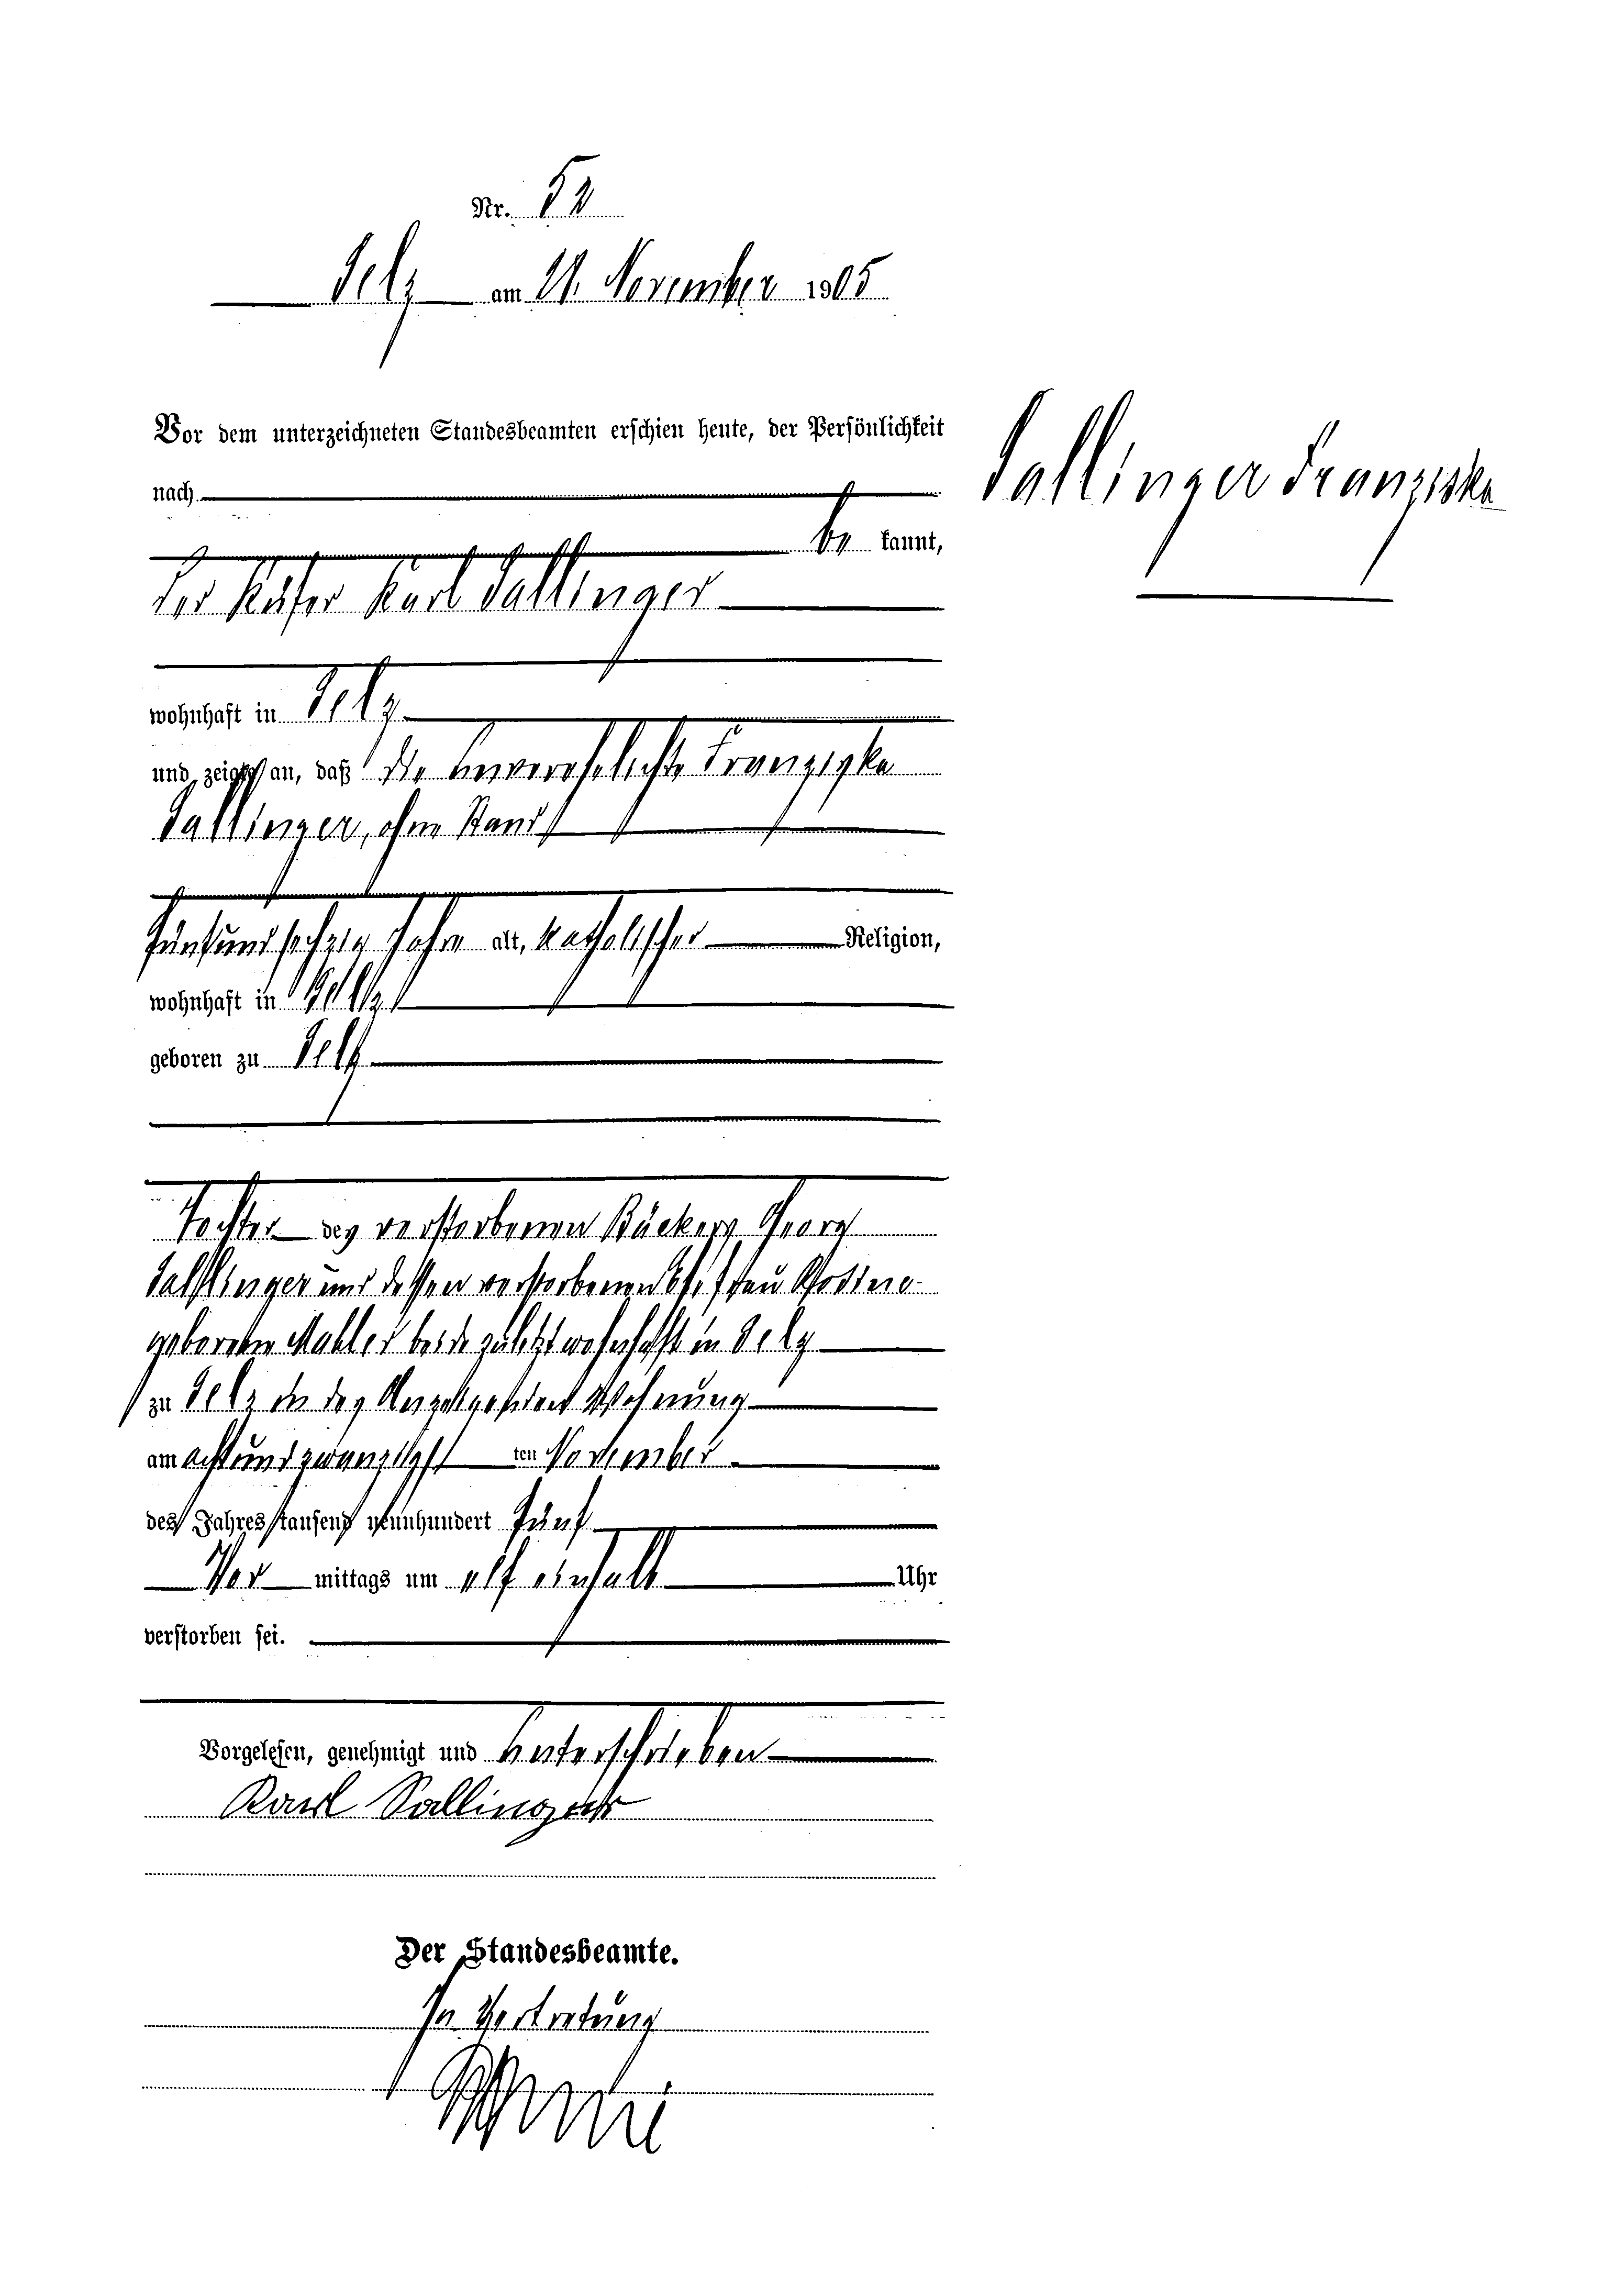 Nr.
Selz am November 1905
Vor dem unterzeichneten Standesbeamten erschien heute, der Persönlichkeit
nach
be kannt,
der Küfer Karl Sallinger
wohnhaft in Selz
und zeigte an, daß die unverehelichte Franziska
Sallinger, ohne Stand,
fünfundsechzig Jahre alt, katholischer Religion,
wohnhaft in Selz,
geboren zu Selz
Tochter des verstorbenen Bäckers Georg
Sallinger und dessen verstorbenen Ehefrau
geborenen beide zuletzt wohnhaft in Selz
zu Selz in des Wohnung
am achtundzwanzigst ten November
des Jahres tausend neunhundert fünf
Vor mittags um elf einhalb Uhr
verstorben sei.
Vorgelesen, genehmigt und unterschrieben
Karl Sallinger
Der Standesbeamte.
In Vertretung
Sallinger Franziska